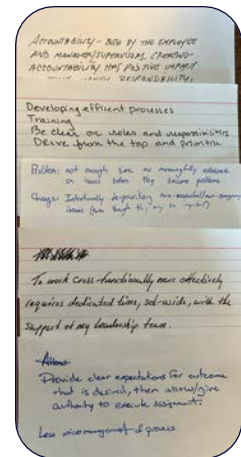 ACCOUNTABILITY - BOTH BY THE EMPLOYEE
AND MANAGER/SUPERVISOR. CREATING
ACCOUNTABILITY HAS POSITIVE IMPACT
RESPONSIBILITY.
Developing efficient processes
Training
Be clear on roles and responsibilities
Drive from the top and prioritize
Problem: not enough time to meaningfully
on issues before they become problems
Change: Intentionally de-prioritizing
items (even though they may be
To work cross-functionally more effectively
requires dedicated time, set-aside, with the
support of my leadership team.
Allow
Provide clear expectations for outcome
that is desired, then allow/give
authority to execute assignment.
Less micromanagement of process.